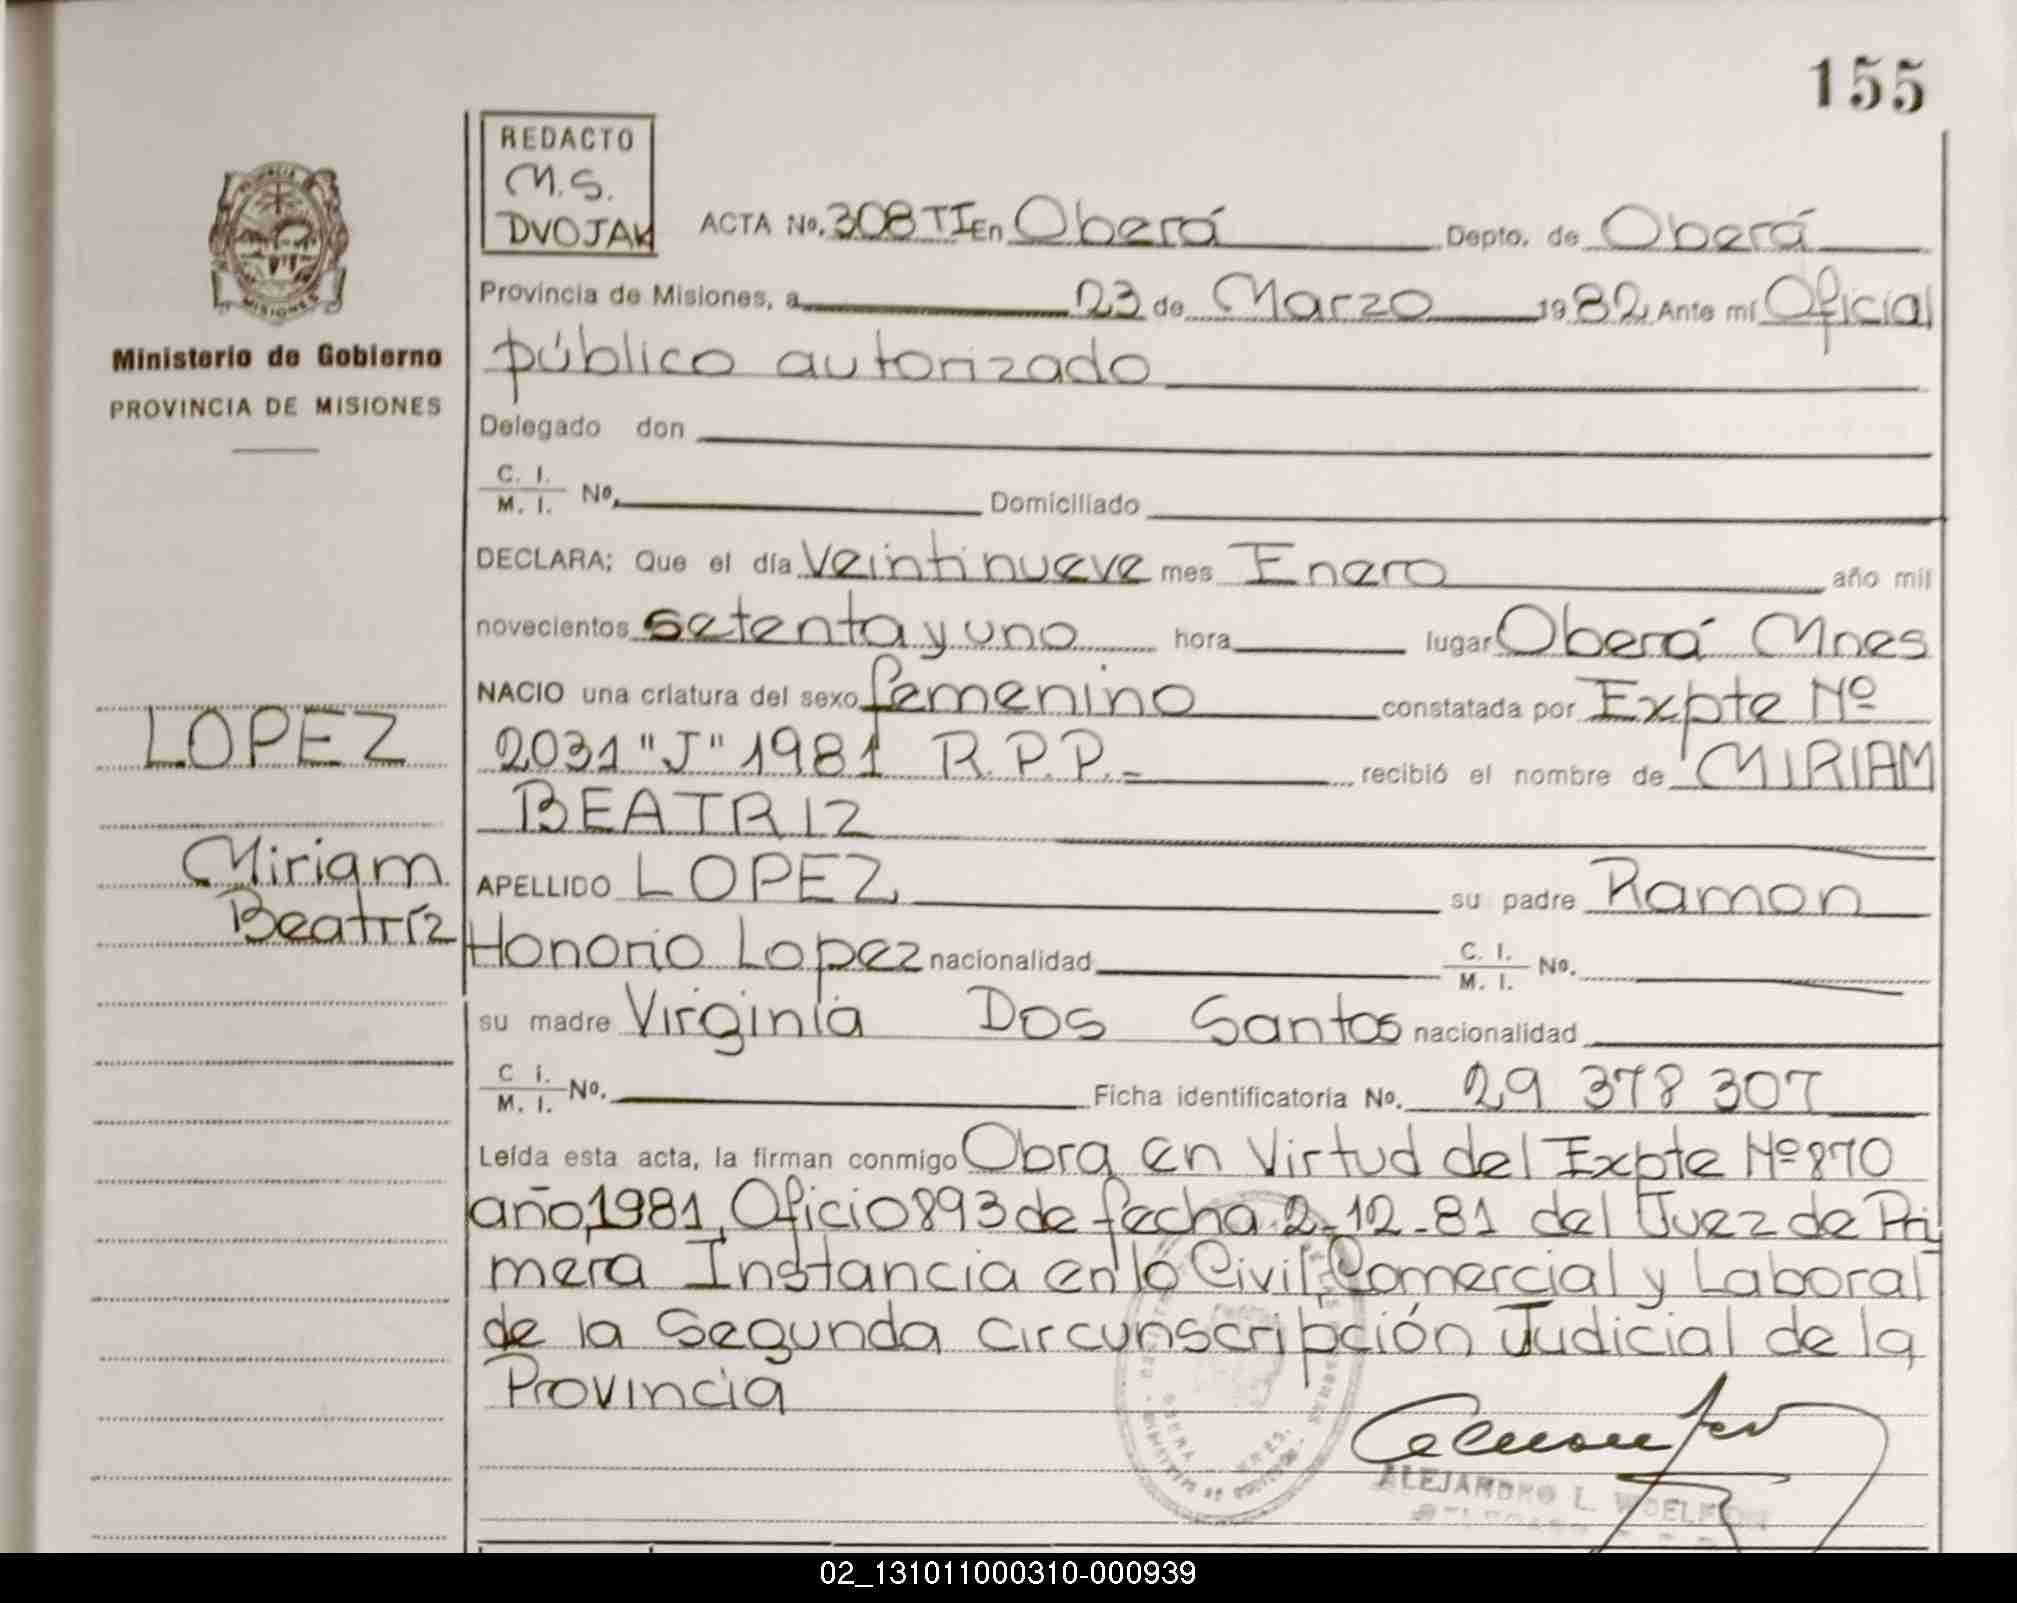 155
REDACTO
M.S.
DVOJAK
ACTA No. 308 TI En Oberá Depto. de Oberá
Provincia de Misiones, a 23 de Marzo 1982 Ante mí Oficial
público autorizado
Delegado don
C. I. / M. I. No. Domiciliado
DECLARA; Que el día Veintinueve mes Enero año mil
novecientos setenta y uno hora lugar Oberá Mnes
NACIO una criatura del sexo femenino constatada por Expte Nº
2031 "J" 1981 R.P.P.= recibió el nombre de MIRIAM
BEATRIZ
APELLIDO LOPEZ su padre Ramon
Honorio Lopez nacionalidad C. I. / M. I. No.
su madre Virginia Dos Santos nacionalidad
C i. / M. I. No. Ficha identificatoria No. 29 378 307
Leída esta acta, la firman conmigo Obra en Virtud del Expte Nº 870
año, 1981, Oficio 893 de fecha 2-12-81 del Juez de Pri
mera Instancia en lo Civil, Comercial y Laboral
de la Segunda circunscripción Judicial de la
Provincia
ALEJANDRO L.
PROVINCIA
MISIONES
Ministerio de Gobierno
PROVINCIA DE MISIONES
LOPEZ
Miriam
Beatríz
02_131011000310-000939